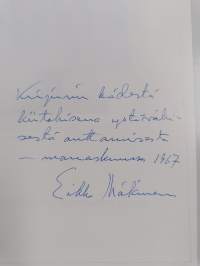 Kirjurin kädestä
kiitokseno ystävälli-
sestä auttamisesta
– marraskuussa 1967
Erkki Mäkinen